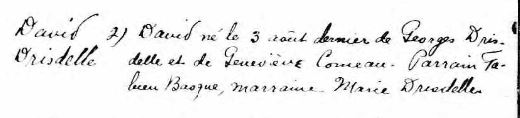 David 2) David né le 3 août dernier de Georges Dris-
Drisdelle delle et de Geneviève Comeau. Parrain Fa-
bien Basque, marraine Marie Drisdelle